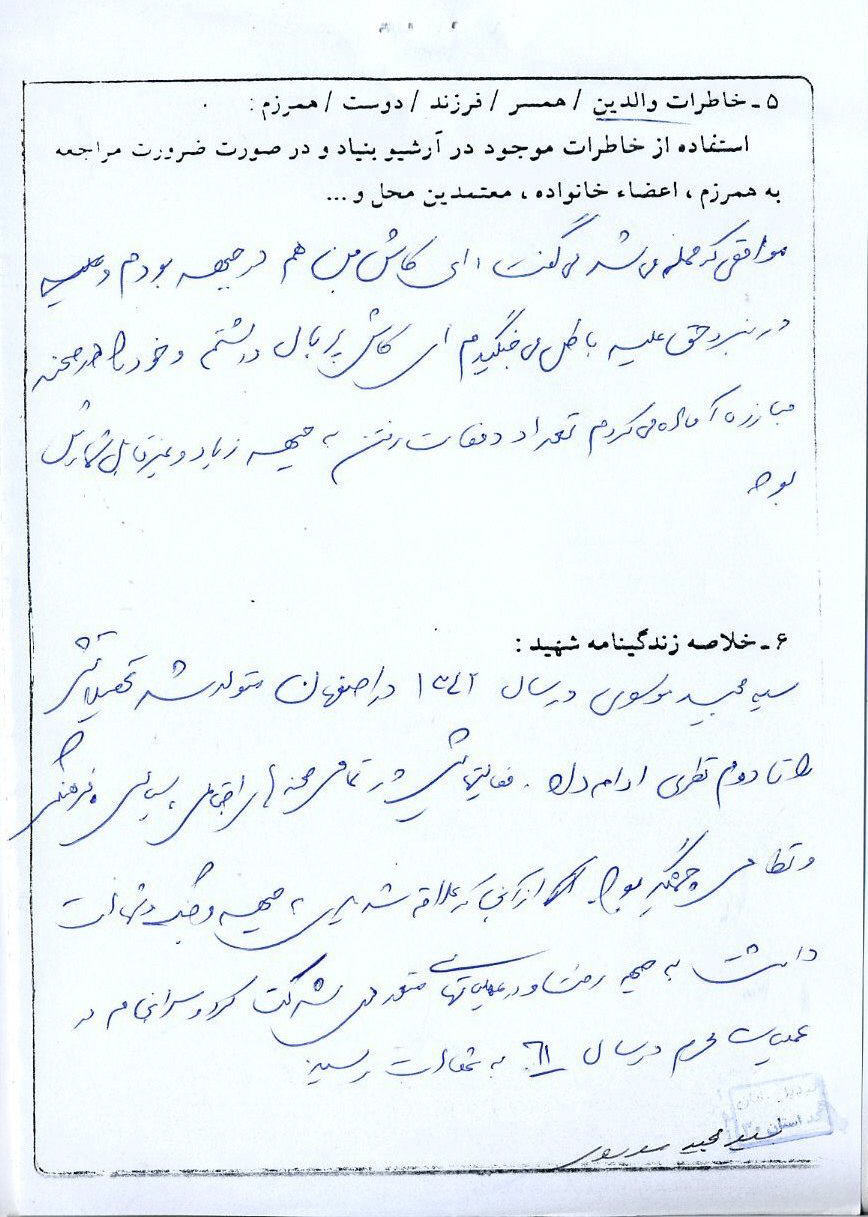 ۵ ـ خاطرات والدین / همسر / فرزند / دوست / همرزم :
استفاده از خاطرات موجود در آرشیو بنیاد و در صورت ضرورت مراجعه
به همرزم ، اعضاء خانواده ، معتمدین محل و ...
مواقعی که حمله می شد می گفت ای کاش من هم در جبهه بودم و
در نبرد حق علیه باطل می جنگیدم ای کاش پر بال داشتم و خود را در صحنه
مبارزه آماده می کردم تعداد دفعات رفتن به جبهه زیاد و غیر قابل شمارش
بود
۶ ـ خلاصه زندگینامه شهید :
سید مجید موسوی در سال ۱۳۴۲ در اصفهان متولد شد تحصیلاتش
را تا دوم نظری ادامه داد . فعالیتهایش در تمامی صحنه های اجتماعی ، سیاسی ، فرهنگی
و نظامی چمگیر بود . از آنجا که علاقه شدیدی به جبهه و جنگ و شهادت
داشت به جبهه رفت و در عملیاتهای متعددی شرکت کرد و سرانجام در
عملیات محرم در سال ۶۱ به شهادت رسید
سید مجید موسوی